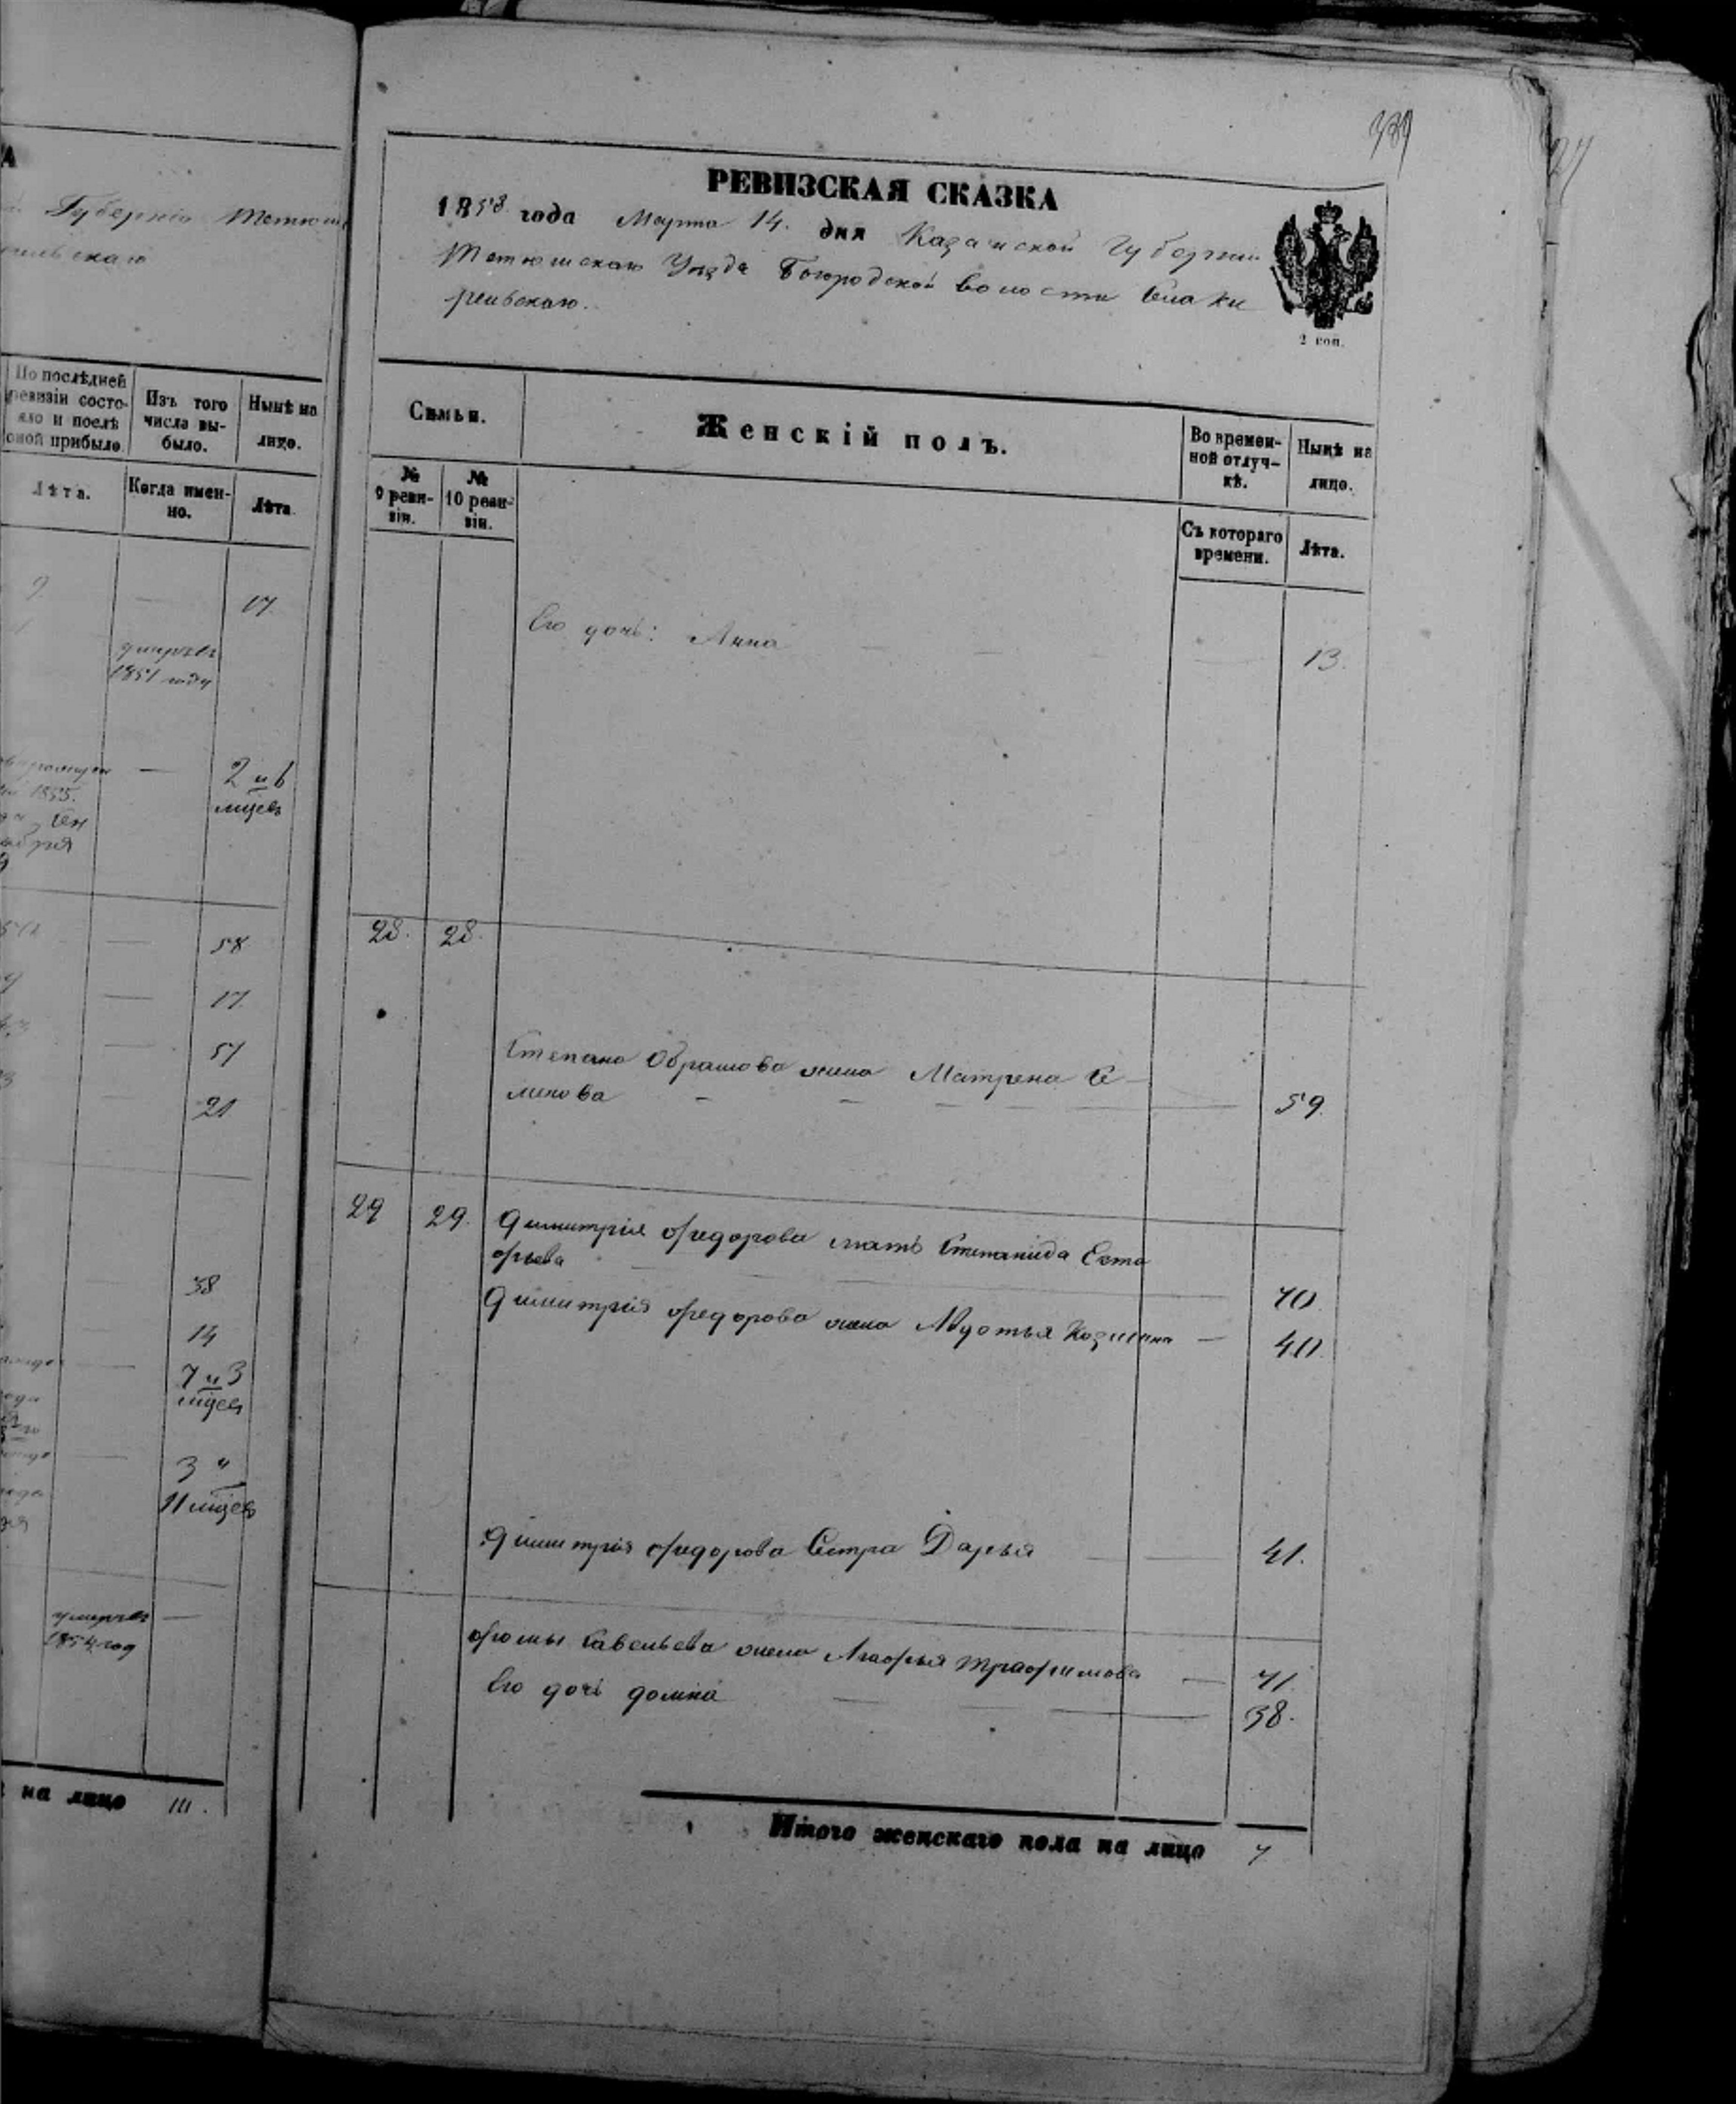 А
Губернiи Тетюш
По послѣдней
ревизiи состо-
яло и послѣ
оной прибыло
Изъ того
числа вы-
было.
Нынѣ на
лицо.
Лѣта.
Когда имен-
но.
Лѣта
17.
умерлъ
1851 году
2 и 6
мцевъ
1855.
58
17.
51
21
38
14
7 и 3
мцев
3 и
11 мцев
умерлъ
1854 год
на лицо
РЕВИЗСКАЯ СКАЗКА
1858 года Марта 14. дня Казанской Губернiи
Тетюшскаго Уѣзда Богородской волости
2 коп.
Семьи.
Женскiй полъ.
Во времен-
ной отлуч-
кѣ.
Нынѣ на
лицо.
№
9 реви-
зiи.
№
10 реви-
зiи.
Съ котораго
времени.
Лѣта.
Его дочь: Анна 13.
28. 28.
Степана Обрамова жена Матрена Се-
менова 59.
29 29. Димитрiя Федорова мать Степанида
70.
Димитрiя Федорова жена Авдотья Козмина 40.
Димитрiя Федорова Сестра Дарья 41.
Фомы Савельева жена Агафья Трафимова 71.
Его дочь домна 38.
Итого женскаго пола на лицо 7